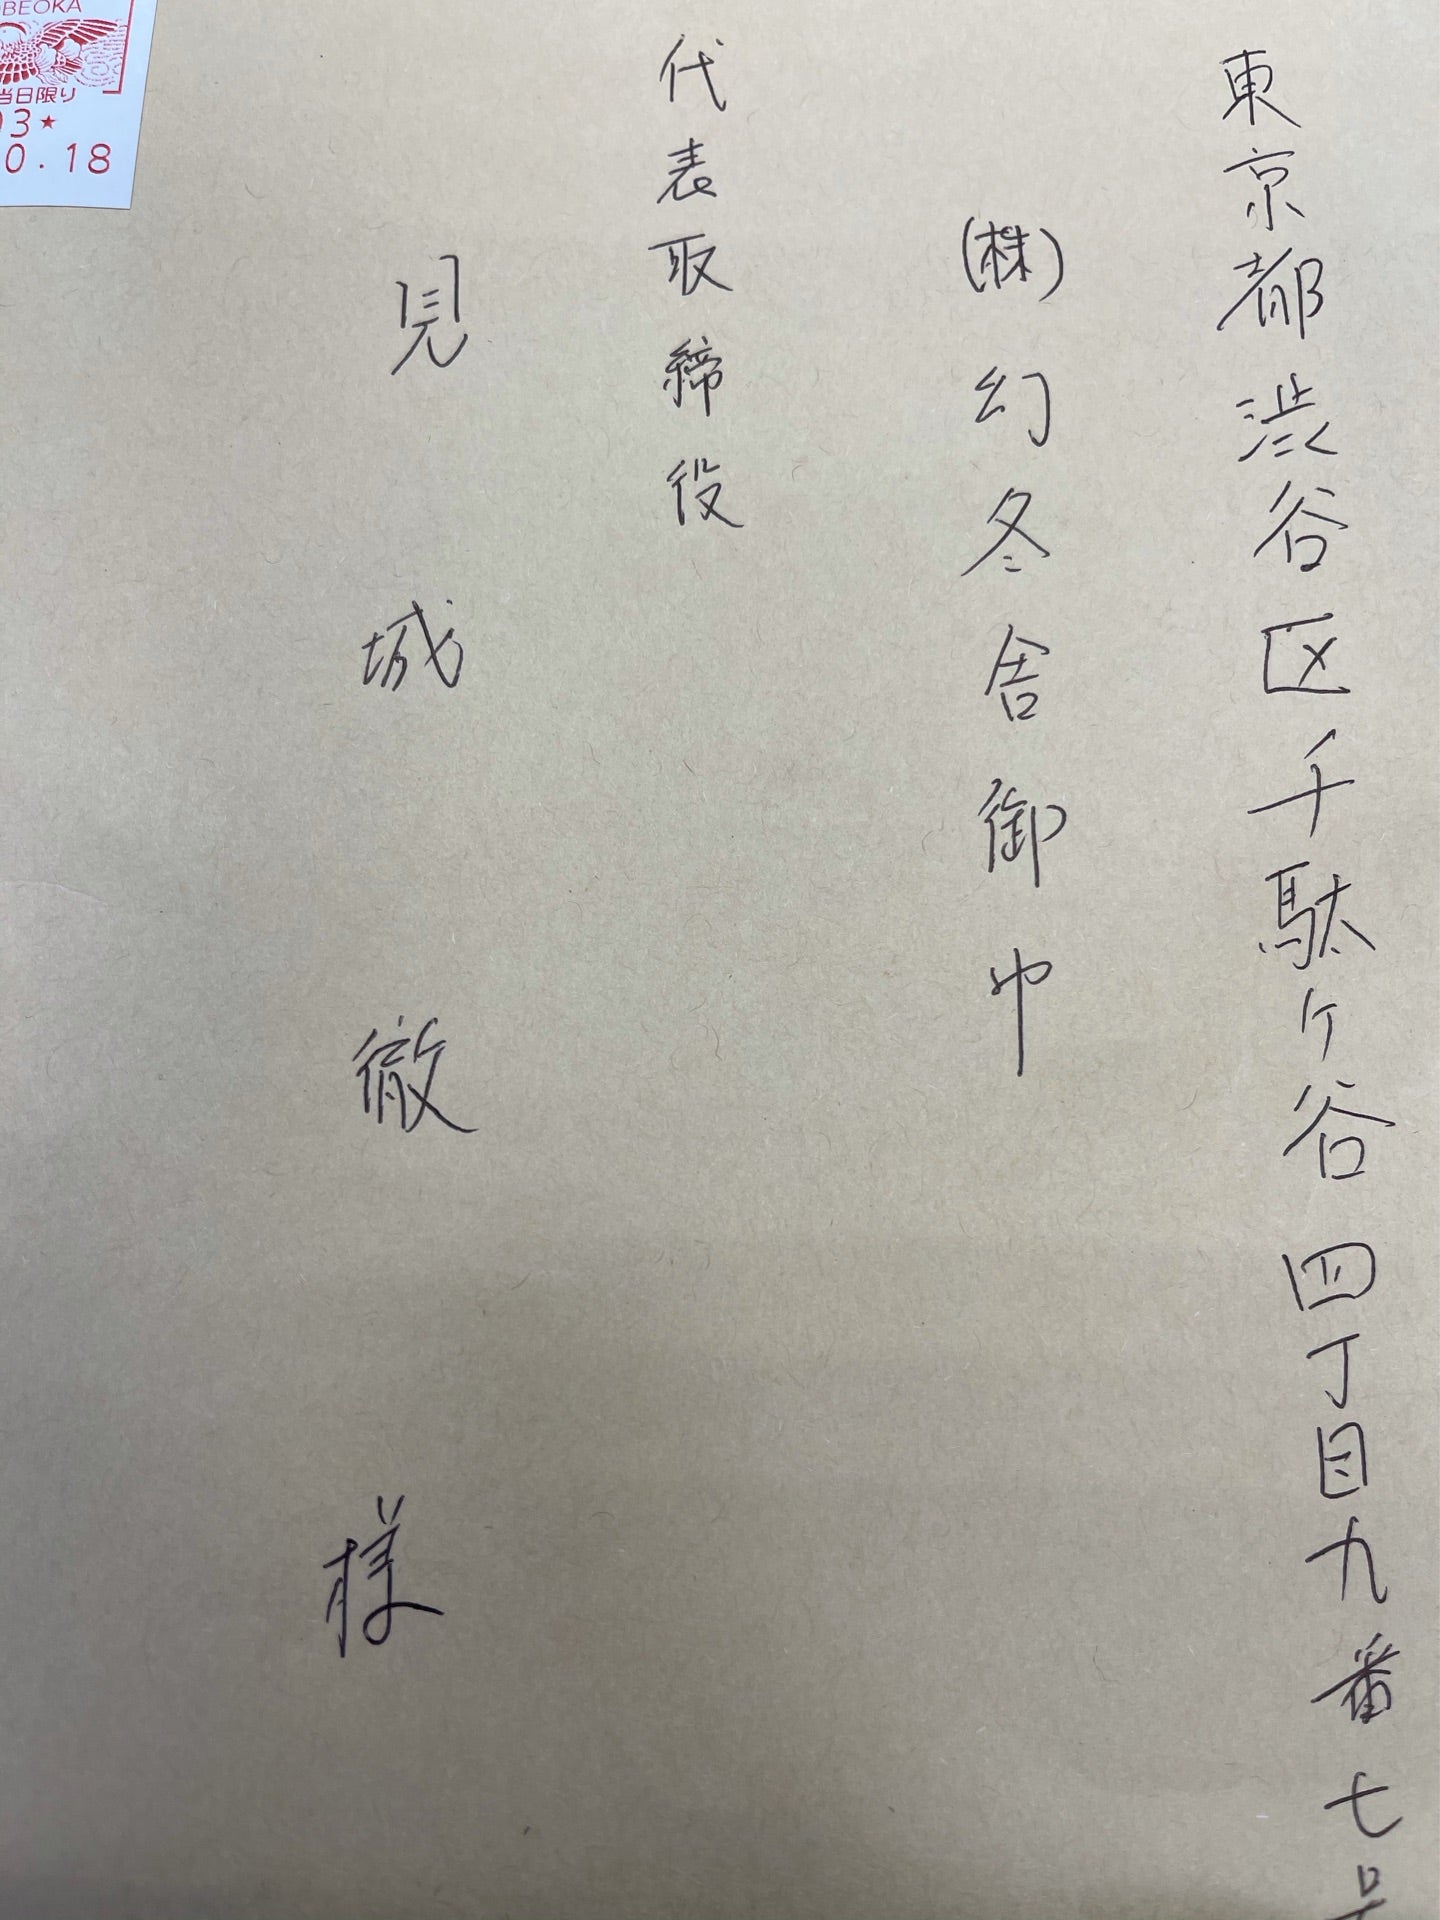 東京都渋谷区千駄ヶ谷四丁目九番七号
(株)幻冬舎御中
代表取締役
見城徹様
OBEOKA
当日限り
03★
0.18